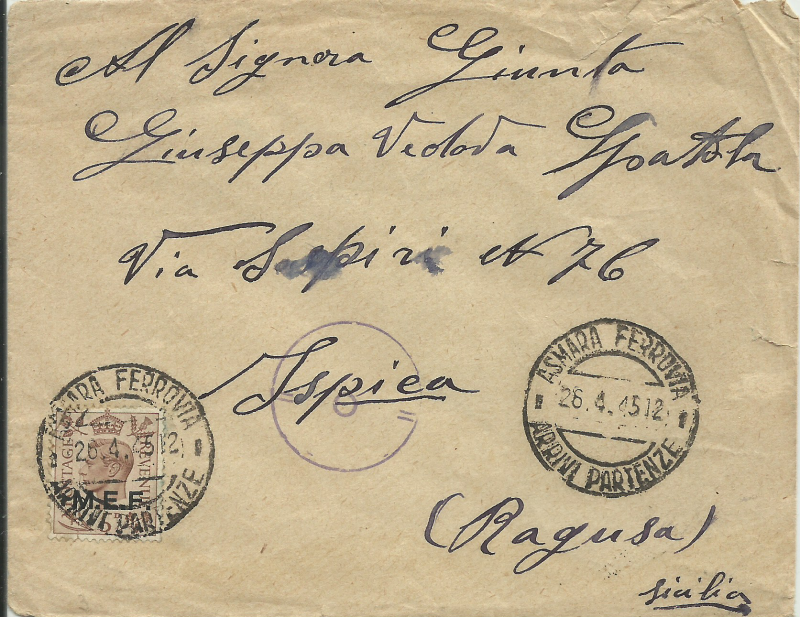 Al Signora Giunta
Giuseppa Vedova Spatola
Via N 76
Ispica
(Ragusa)
Sicilia
ASMARA FERROVIA
26.4.45 12
ARRIVI PARTENZE
ASMARA FERROVIA
26.4. 45 12
ARRIVI PARTENZE
M.E.F.